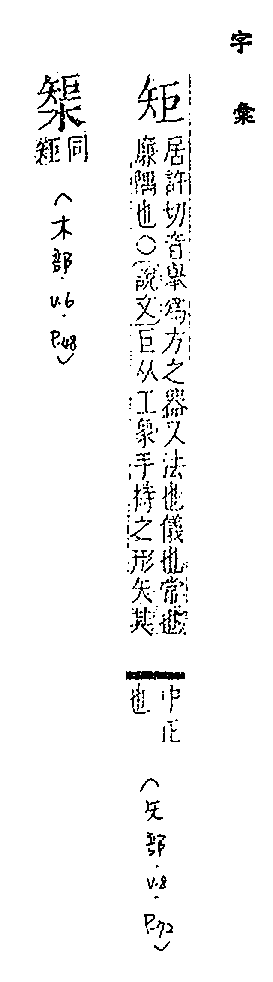 字彙
矩
居許切音舉爲方之器又法也儀也常也
廉隅也○說文巨从工象手持之形矢其
中正
也
(矢部.v.8.P.72)
榘
同
矩
(木部.v.6.P.48)